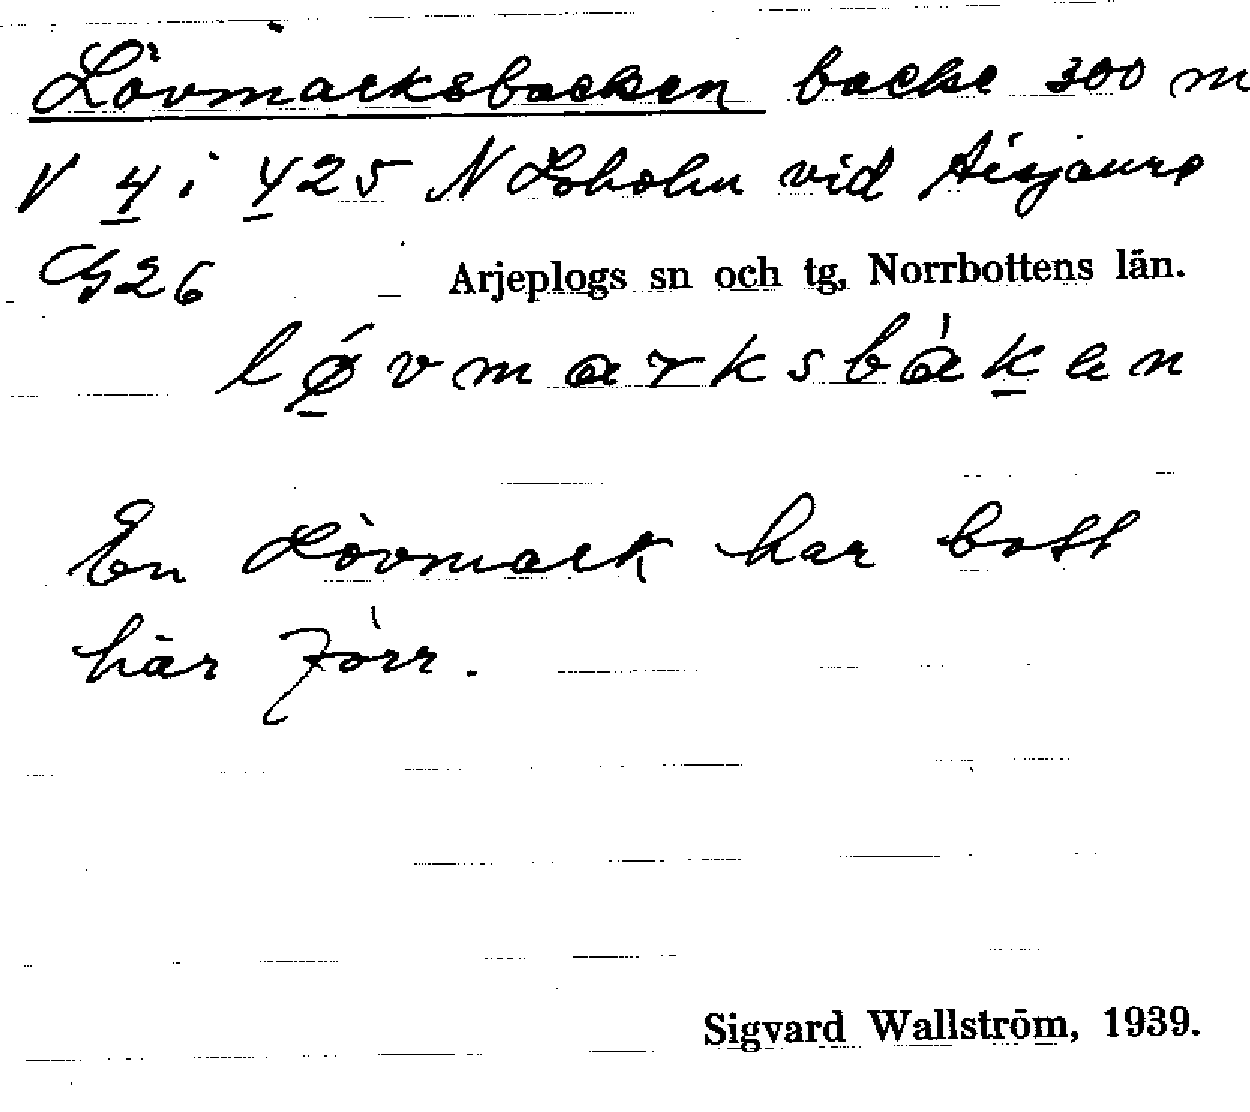 Lövmarksbacken backe 300 m
V 4 i 425 N Loholm vid Aisjaure
G26 Arjeplogs sn och tg, Norrbottens län.
lǿvmarksbákan
En Lövmark har bott
här förr.
Sigvard Wallström, 1939.